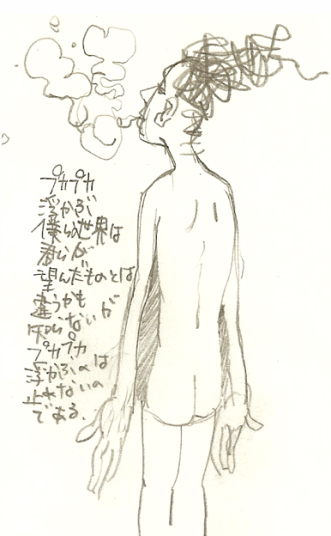 プカプカ
浮かぶ
僕らの世界は
君らが
望んだものとは
違うかも
知らないが
プカプカ
浮かぶのは
止まないの
である.